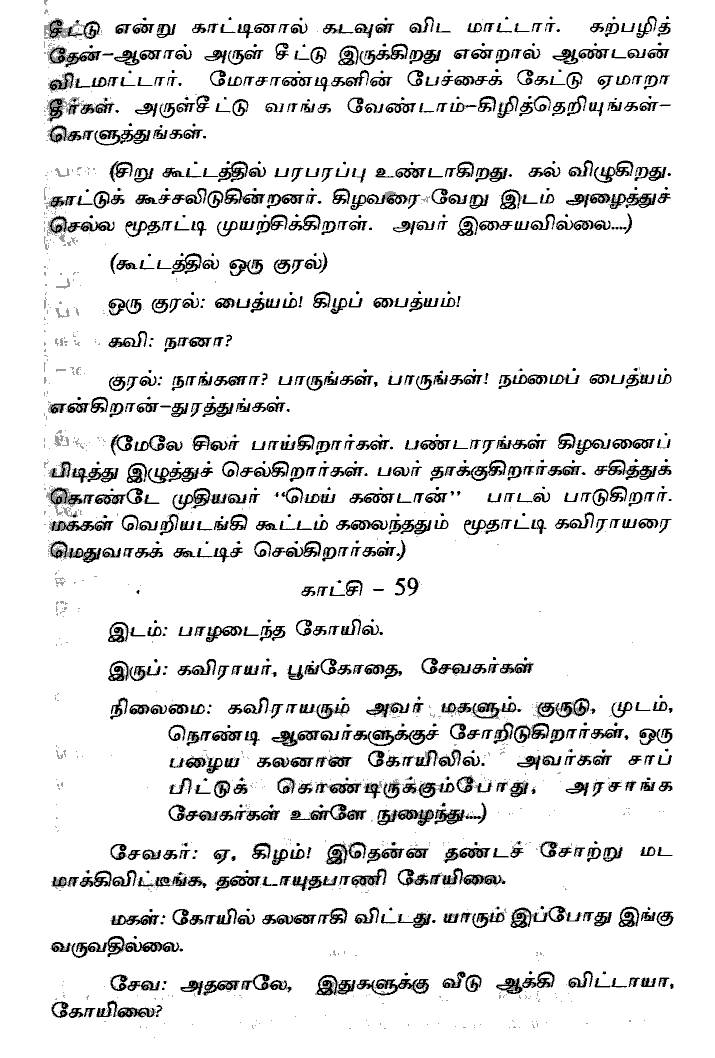 சீட்டு என்று காட்டினால் கடவுள் விட மாட்டார். கற்பழித்
தேன்–ஆனால் அருள் சீட்டு இருக்கிறது என்றால் ஆண்டவன்
விடமாட்டார். மோசாண்டிகளின் பேச்சைக் கேட்டு ஏமாறா
தீர்கள். அருள்சீட்டு வாங்க வேண்டாம்–கிழித்தெறியுங்கள்–
கொளுத்துங்கள்.
(சிறு கூட்டத்தில் பரபரப்பு உண்டாகிறது. கல் விழுகிறது.
காட்டுக் கூச்சலிடுகின்றனர். கிழவரை வேறு இடம் அழைத்துச்
செல்ல மூதாட்டி முயற்சிக்கிறாள். அவர் இசையவில்லை....)
(கூட்டத்தில் ஒரு குரல்)
ஒரு குரல்: பைத்யம்! கிழப் பைத்யம்!
கவி: நானா?
குரல்: நாங்களா? பாருங்கள், பாருங்கள்! நம்மைப் பைத்யம்
என்கிறான்–துரத்துங்கள்.
(மேலே சிலர் பாய்கிறார்கள். பண்டாரங்கள் கிழவனைப்
பிடித்து இழுத்துச் செல்கிறார்கள். பலர் தாக்குகிறார்கள். சகித்துக்
கொண்டே முதியவர் “மெய் கண்டான்” பாடல் பாடுகிறார்.
மக்கள் வெறியடங்கி கூட்டம் கலைந்ததும் மூதாட்டி கவிராயரை
மெதுவாகக் கூட்டிச் செல்கிறார்கள்.)
காட்சி – 59
இடம்: பாழடைந்த கோயில்.
இருப்: கவிராயர், பூங்கோதை, சேவகர்கள்
நிலைமை: கவிராயரும் அவர் மகளும். குருடு, முடம்,
நொண்டி ஆனவர்களுக்குச் சோறிடுகிறார்கள், ஒரு
பழைய கலனான கோயிலில். அவர்கள் சாப்
பிட்டுக் கொண்டிருக்கும்போது, அரசாங்க
சேவகர்கள் உள்ளே நுழைந்து....)
சேவகர்: ஏ, கிழம்! இதென்ன தண்டச் சோற்று மட
மாக்கிவிட்டீங்க, தண்டாயுதபாணி கோயிலை.
மகள்: கோயில் கலனாகி விட்டது. யாரும் இப்போது இங்கு
வருவதில்லை.
சேவ: அதனாலே, இதுகளுக்கு வீடு ஆக்கி விட்டாயா,
கோயிலை?